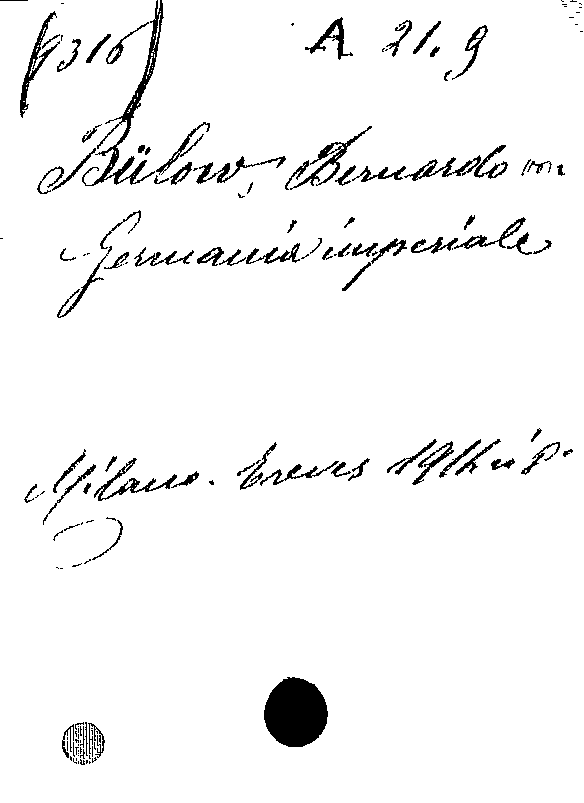 9316 A 21.9
Bülow, Bernardo von
Germania imperiale
Milano. Treves 1914 in 8.